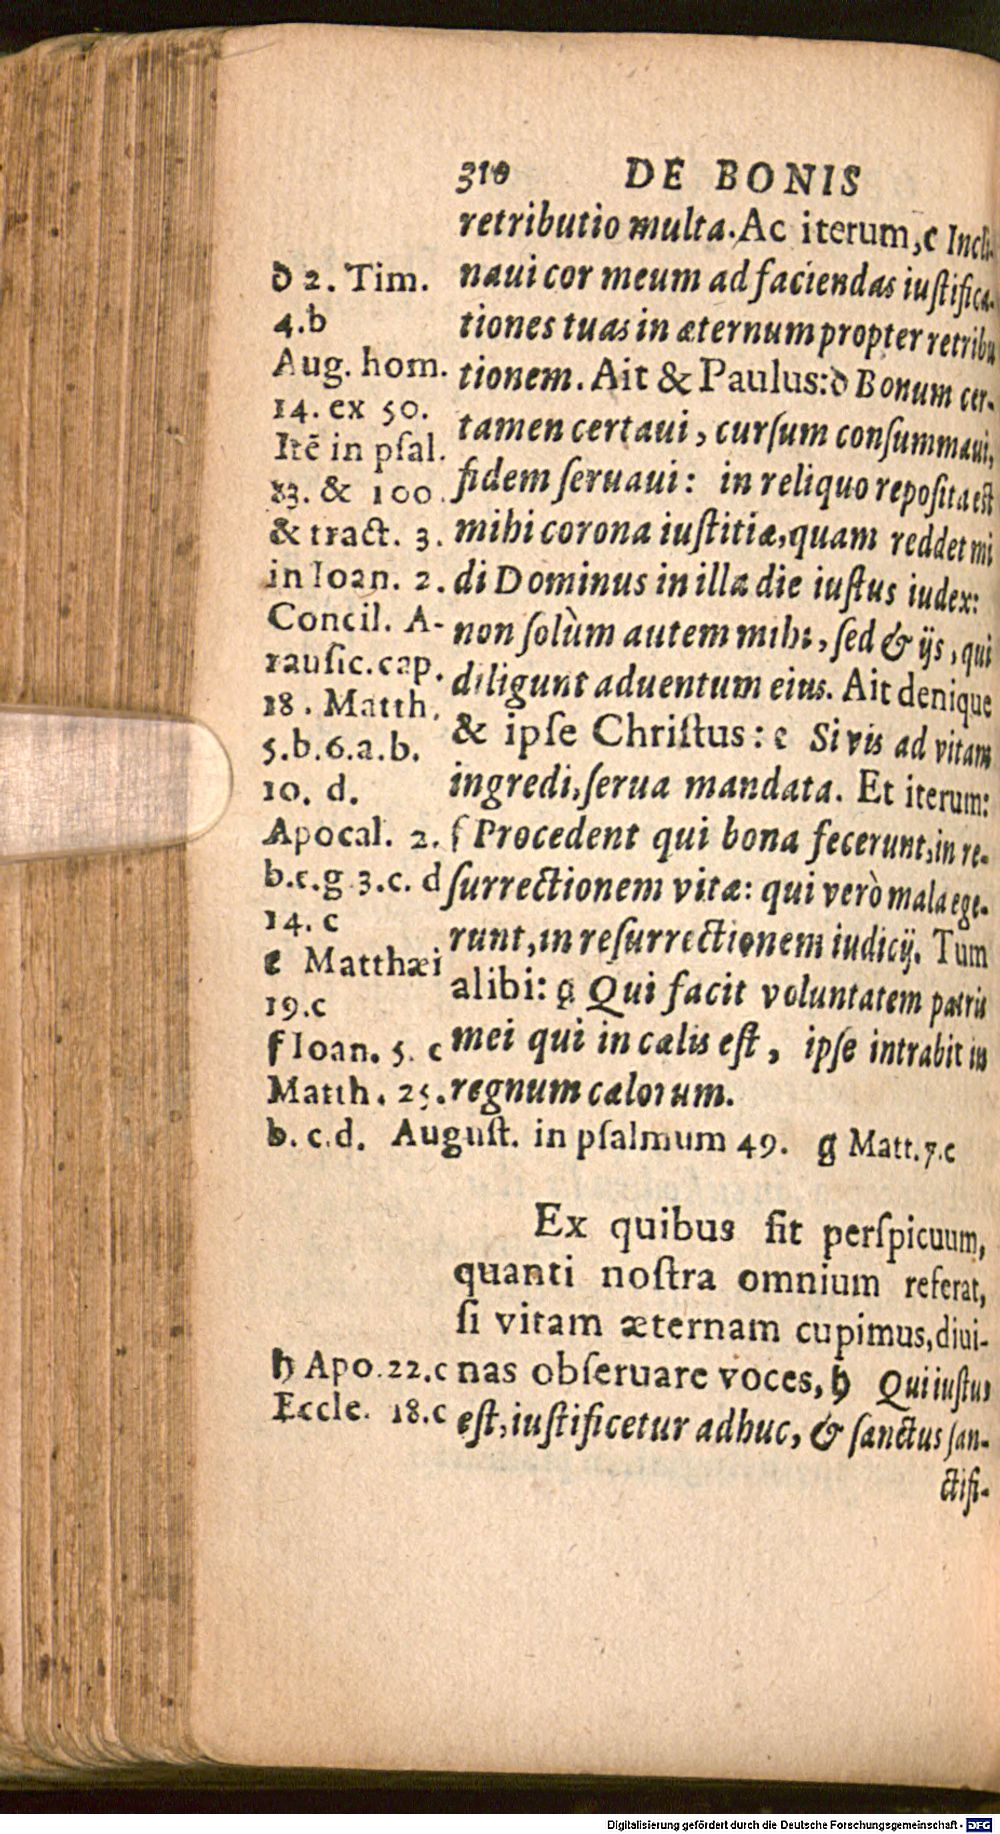 310 DE BONIS
retributio multa. Ac iterum, c Incli-
naui cor meum ad faciendas iuſtifica-
tiones tuas in æternum propter retribu
tionem. Ait & Paulus: d Bonum cer-
tamen certaui, curſum conſummaui,
fidem ſeruaui: in reliquo repoſita eſt
mihi corona iuſtitiæ, quam reddet mi
di Dominus in illa die iuſtus iudex:
non ſolùm autem mihi, ſed & ijs, qui
diligunt aduentum eius. Ait denique
& ipſe Chriſtus: e Si vis ad vitam
ingredi, ſerua mandata. Et iterum:
f Procedent qui bona fecerunt, in re-
ſurrectionem vitæ: qui verò mala ege-
runt, in reſurrectionem iudicij. Tum
alibi: g Qui facit voluntatem patris
mei qui in cælis eſt, ipſe intrabit in
regnum cælorum.
d 2. Tim.
4.b
Aug. hom.
14. ex 50.
Itẽ in pſal.
83. & 100.
& tract. 3.
in Ioan. 2.
Concil. A-
rauſic. cap.
18. Matth.
5.b.6.a.b.
10. d.
Apocal. 2.
b.c.g 3.c. d
14. c
e Matthæi
19.c
f Ioan. 5. c
Matth. 25.
b. c.d. Auguſt. in pſalmum 49. g Matt.7.c
Ex quibus fit perſpicuum,
quanti noſtra omnium referat,
ſi vitam æternam cupimus, diui-
nas obſeruare voces, h Qui iuſtus
eſt, iuſtificetur adhuc, & ſanctus ſan-
ctifi-
h Apo.22.c
Eccle. 18.c
Digitalisierung gefördert durch die Deutsche Forschungsgemeinschaft - DFG